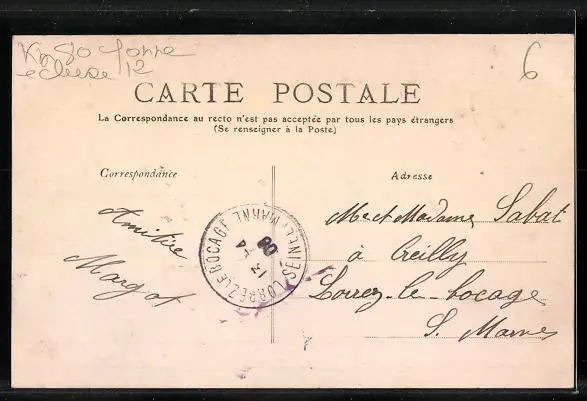 80 Yonne
écluse 12
6
CARTE POSTALE
La Correspondance au recto n'est pas acceptée par tous les pays étrangers
(Se renseigner à la Poste)
Correspondance
Adresse
Amitiés
Margot
LORREZ-LE-BOCAGE SEINE-ET-MARNE
08
Mr et Madame Sabat
à Creilly
Lorrez-le-bocage
S. Marne